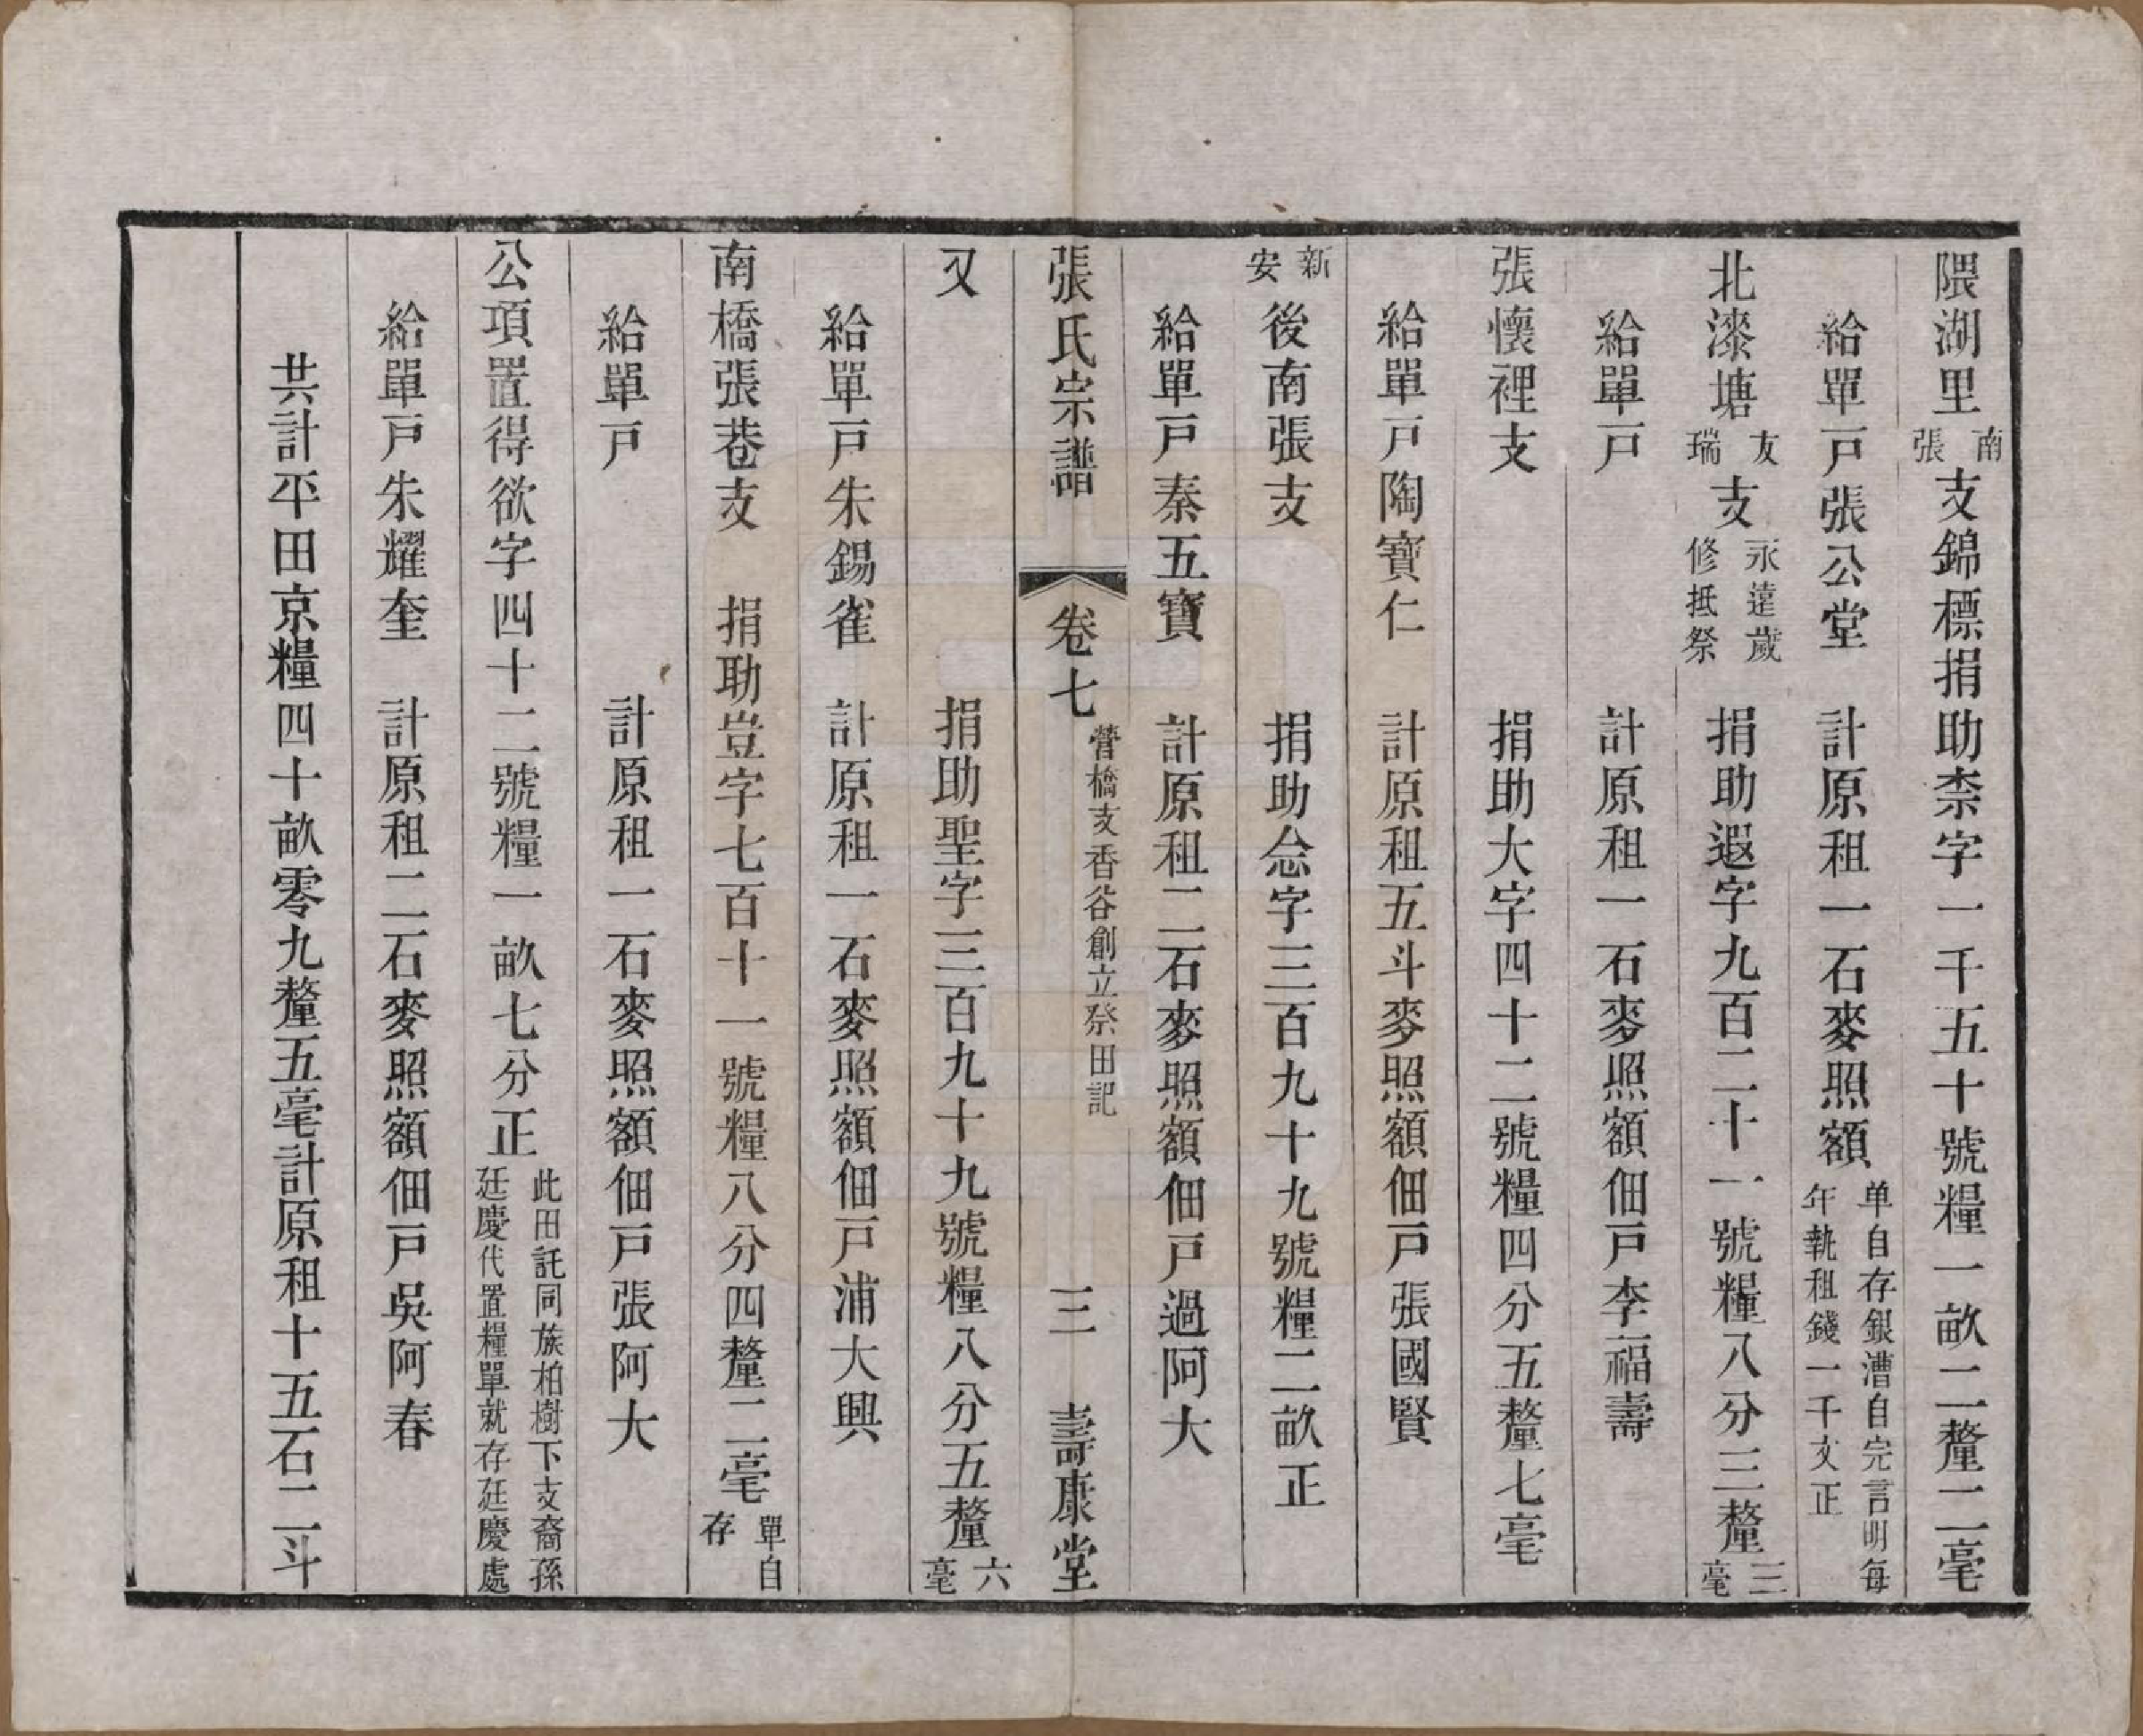 隈湖里南張支錦標捐助柰字一千五十號糧一畝二釐二毫
給單戸張公堂　計原租一石麥照額单自存銀漕自完言明每年執租錢一千文正
北漆塘友瑞支永遠歲修抵祭　捐助遐字九百二十一號糧八分三釐三毫
給單戸　計原租一石麥照額佃戸李福壽
張懷裡支　捐助大字四十二號糧四分五釐七毫
給單戸陶寶仁　計原租五斗麥照額佃戸張國賢
新安後南張支　捐助念字三百九十九號糧二畝正
給單戸秦五寶　計原租二石麥照額佃戸過阿大
張氏宗譜　卷七　營橋支香谷創立祭田記　三　壽康堂
又　捐助聖字三百九十九號糧八分五釐六毫
給單戸朱錫雀　計原租一石麥照額佃戸浦大興
南橋張巷支　捐助豈字七百十一號糧八分四釐二毫單自存
給單戸　計原租一石麥照額佃戸張阿大
公項置得欲字四十二號糧一畝七分正此田託同族柏樹下支裔孫廷慶代置糧單就存廷慶處
給單戸朱耀奎　計原租二石麥照額佃戸吳阿春
共計平田京糧四十畝零九釐五毫計原租十五石二斗